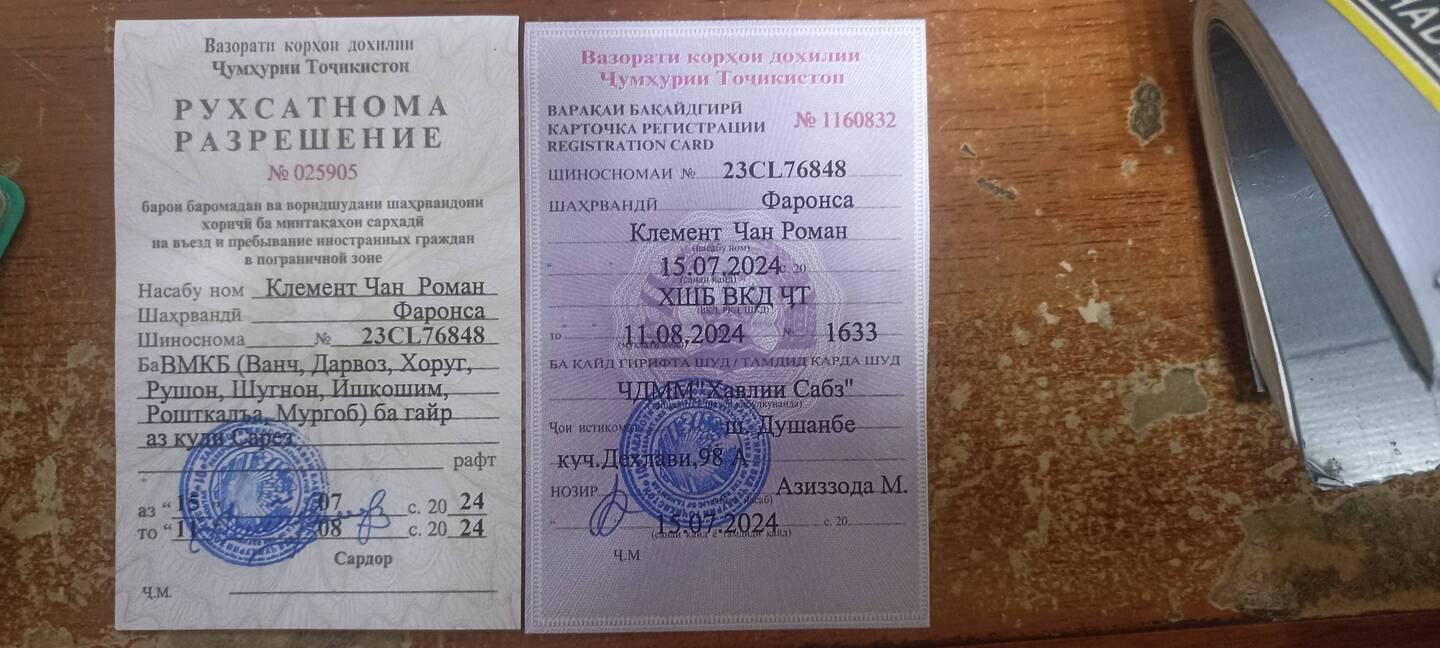 Вазорати корҳои дохилии
Ҷумҳурии Тоҷикистон
РУХСАТНОМА
РАЗРЕШЕНИЕ
№ 025905
барои баромадан ва воридшудани шаҳрвандони
хориҷӣ ба минтақаҳои сарҳадӣ
на въезд и пребывание иностранных граждан
в пограничной зоне
Насабу ном Клемент Чан Роман
Шаҳрвандӣ Фаронса
Шиноснома № 23CL76848
Ба ВМКБ (Ванч, Дарвоз, Хоруг,
Рушон, Шугнон, Ишкошим,
Рошткалъа, Мургоб) ба гайр
аз кули Сарез
рафт
аз “ 07 с. 20 24
то “ 08 с. 20 24
Сардор
Ҷ.М.
Вазорати корҳои дохилии
Ҷумҳурии Тоҷикистон
ВАРАҚАИ БАҚАЙДГИРӢ
КАРТОЧКА РЕГИСТРАЦИИ № 1160832
REGISTRATION CARD
ШИНОСНОМАИ № 23CL76848
ШАҲРВАНДӢ Фаронса
Клемент Чан Роман
(насабу ном)
15.07.2024 с. 20
(санаи қайд)
ХШБ ВКД ҶТ
то 11.08,2024 № 1633
БА ҚАЙД ГИРИФТА ШУД / ТАМДИД КАРДА ШУД
ҶДММ "Хавлии Сабз"
Ҷои ш. Душанбе
куч.Дехлави,98 А
НОЗИР Азиззода М.
15.07.2024 с. 20
(санаи қайд ё тамдиди қайд)
Ҷ.М